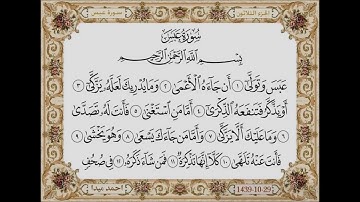 الجزء الثلاثون
سورة عبس
سُورَةُ عَبَسَ
بِسْمِ اللَّهِ الرَّحْمَٰنِ الرَّحِيمِ
عَبَسَ وَتَوَلَّىٰ ١ أَن جَاءَهُ الْأَعْمَىٰ ٢ وَمَا يُدْرِيكَ لَعَلَّهُ يَزَّكَّىٰ ٣
أَوْ يَذَّكَّرُ فَتَنفَعَهُ الذِّكْرَىٰ ٤ أَمَّا مَنِ اسْتَغْنَىٰ ٥ فَأَنتَ لَهُ تَصَدَّىٰ
٦ وَمَا عَلَيْكَ أَلَّا يَزَّكَّىٰ ٧ وَأَمَّا مَن جَاءَكَ يَسْعَىٰ ٨ وَهُوَ يَخْشَىٰ ٩
فَأَنتَ عَنْهُ تَلَهَّىٰ ١٠ كَلَّا إِنَّهَا تَذْكِرَةٌ ١١ فَمَن شَاءَ ذَكَرَهُ ١٢ فِي صُحُفٍ
احمد ميدا
1439-10-29